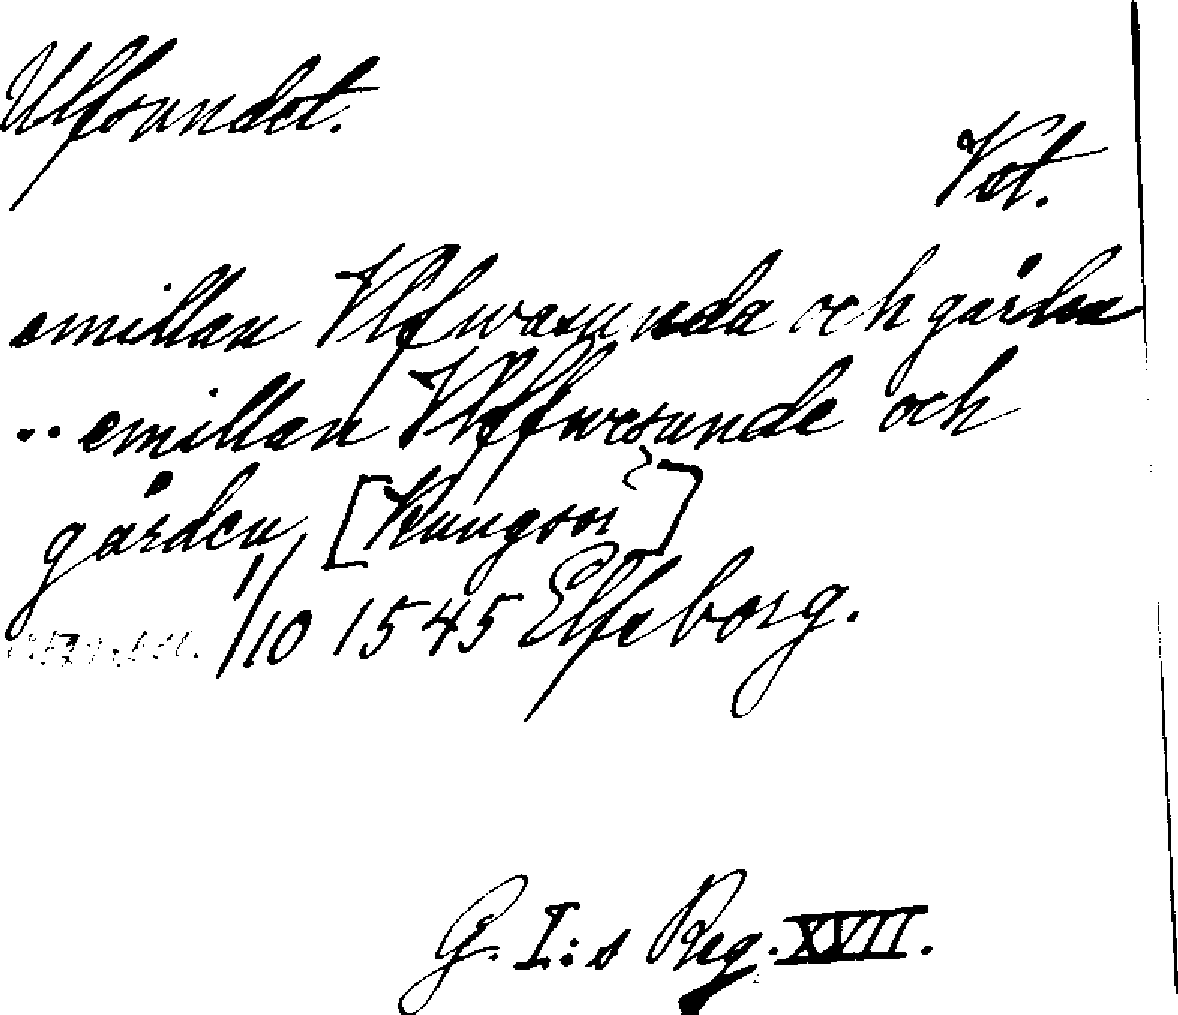 Ulfsundet.
Vst.
emillan Vlfwasunda och gården
.. emillan Vlffwesunde och
gården [Kungsör]
1/10 1545 Elfsborg.
G. I:s Reg. XVII.